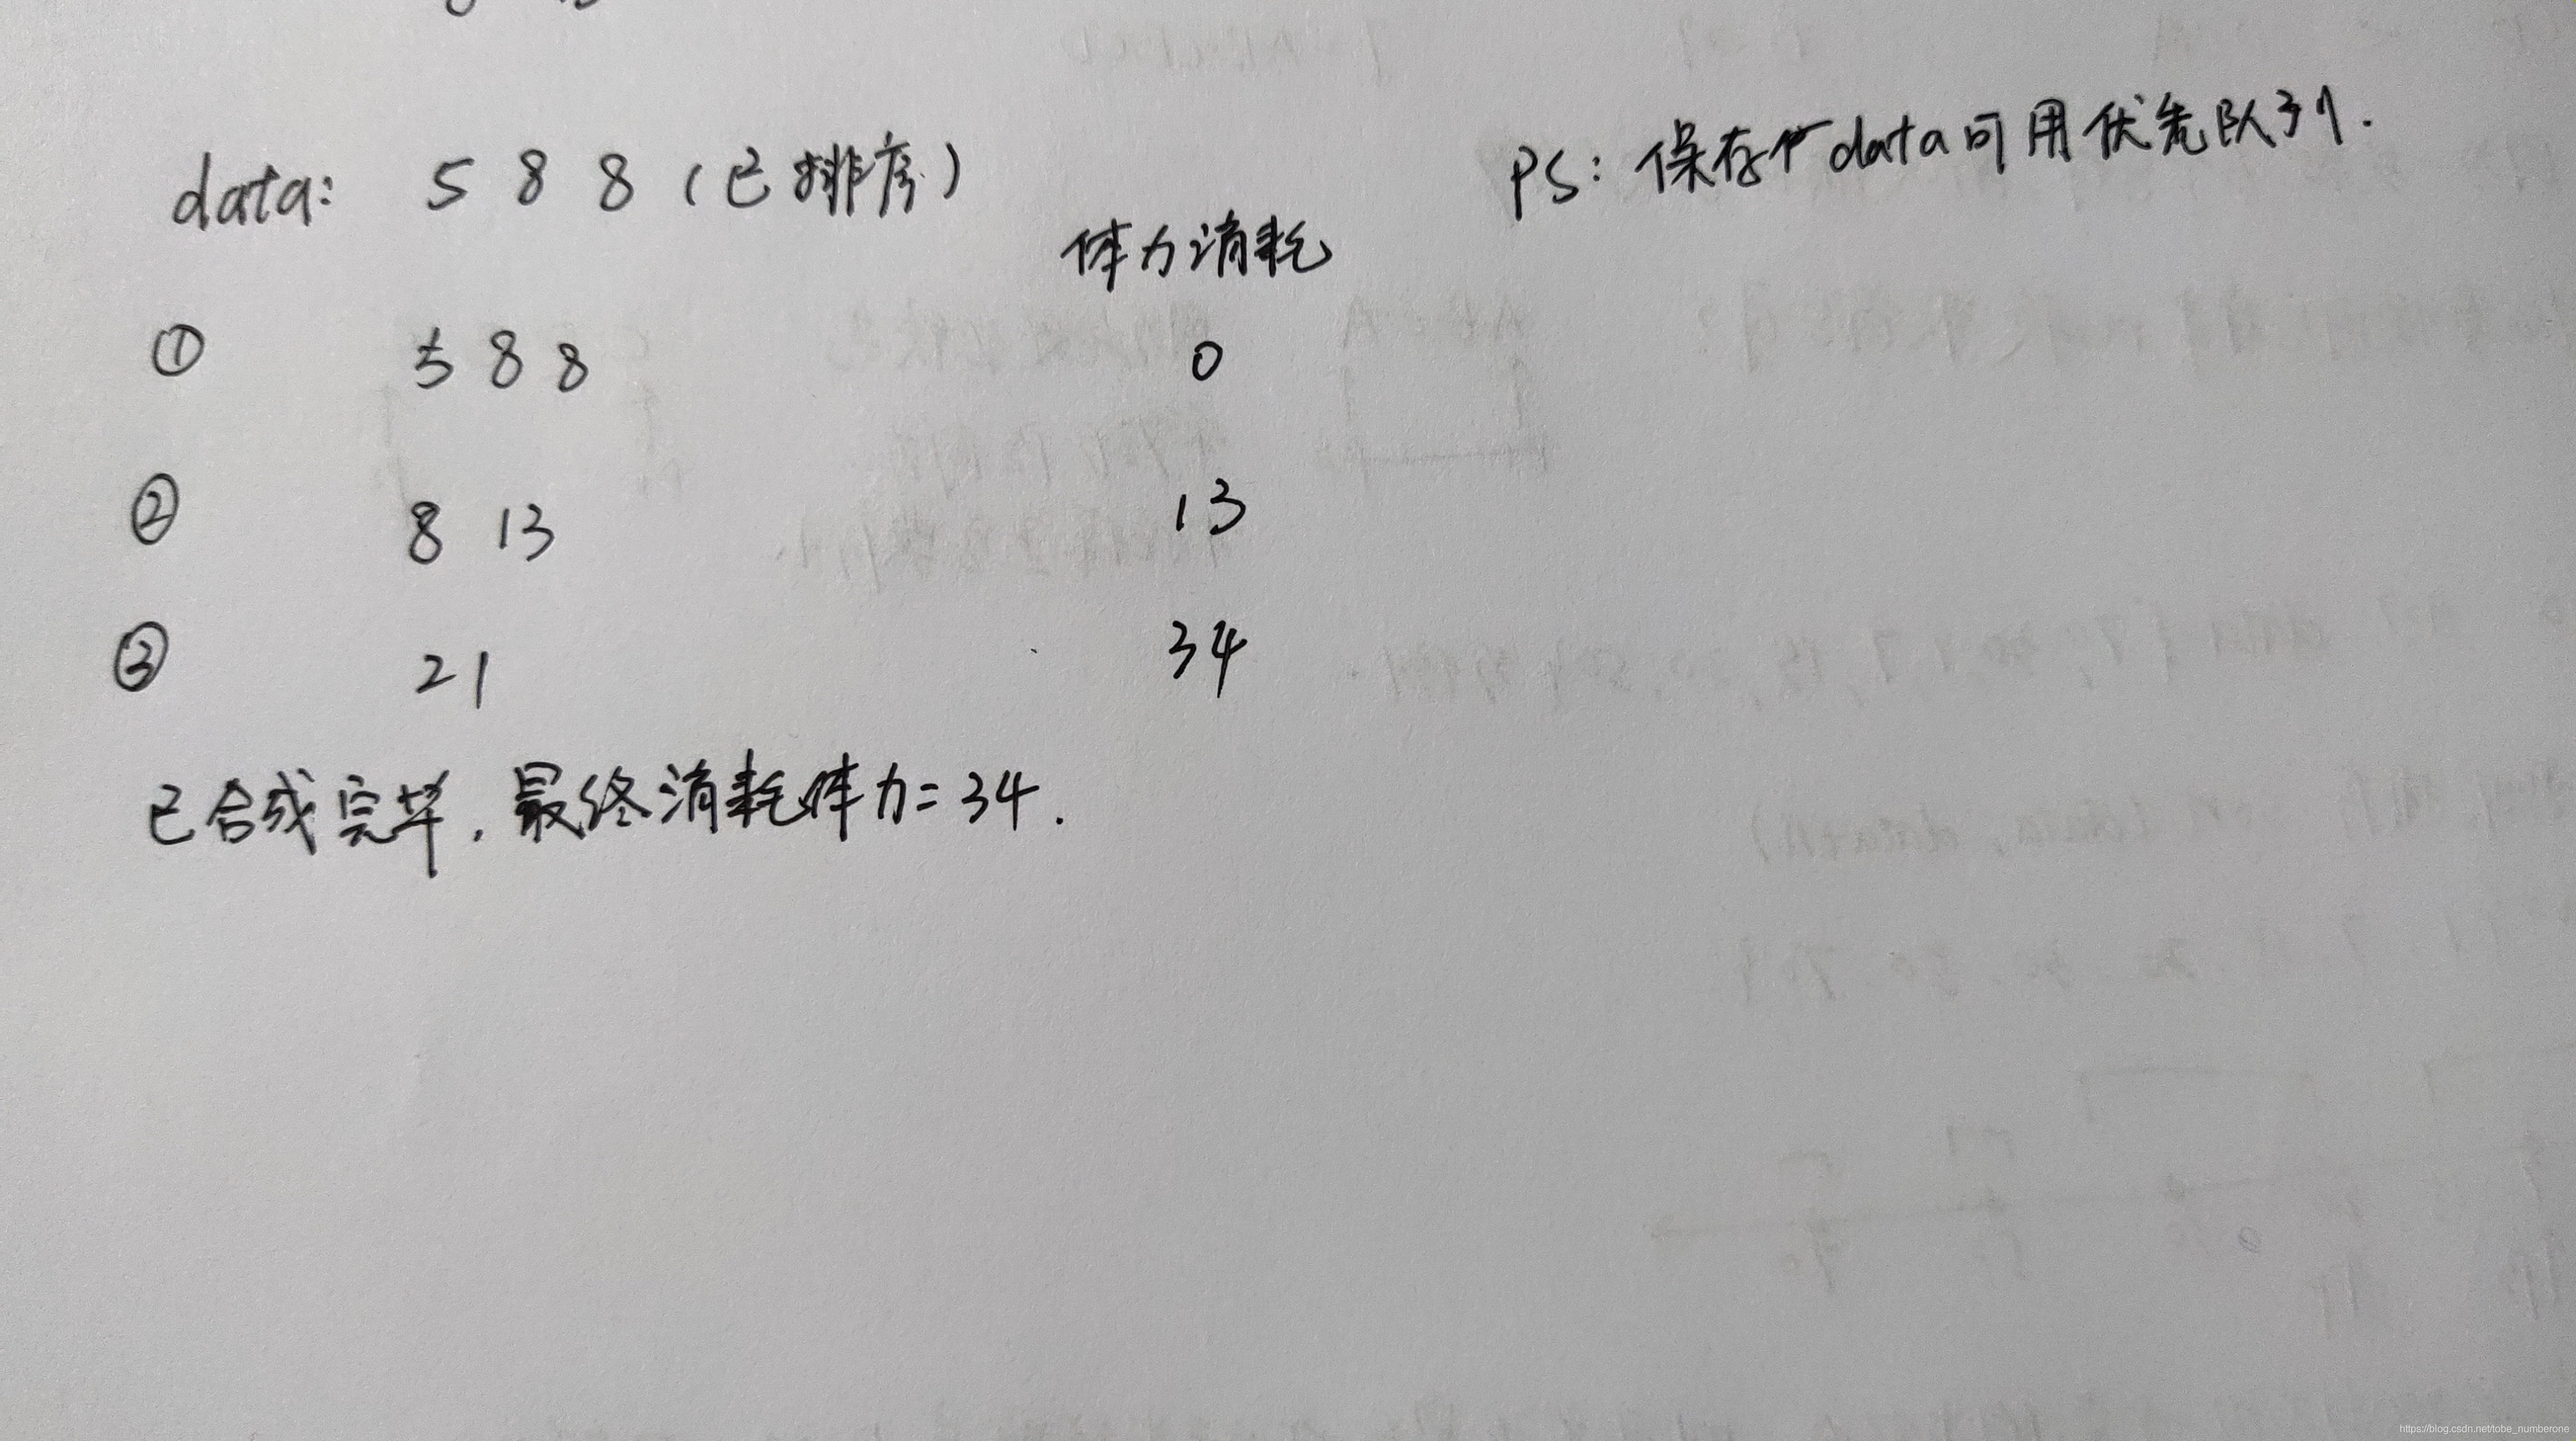 data: 5 8 8 (已排序)
PS: 保存 data 可用优先队列.
体力消耗
① 5 8 8 0
② 8 13 13
③ 21 34
已合成完毕, 最终消耗体力=34.
https://blog.csdn.net/tobe_numberone